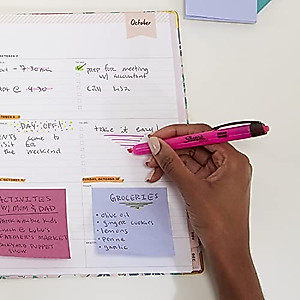 October
- 7:30
prep for meeting
w/ accountant
@ 4:30
call
DAY OFF!
come to
visit for
the weekend
take it easy!
Sharpie
ACTIVITIES
W/ MOM & DAD
FARMER'S MARKET
PUPPET
SHOW
GROCERIES
• olive oil
• ginger cookies
• lemons
• penne
• garlic